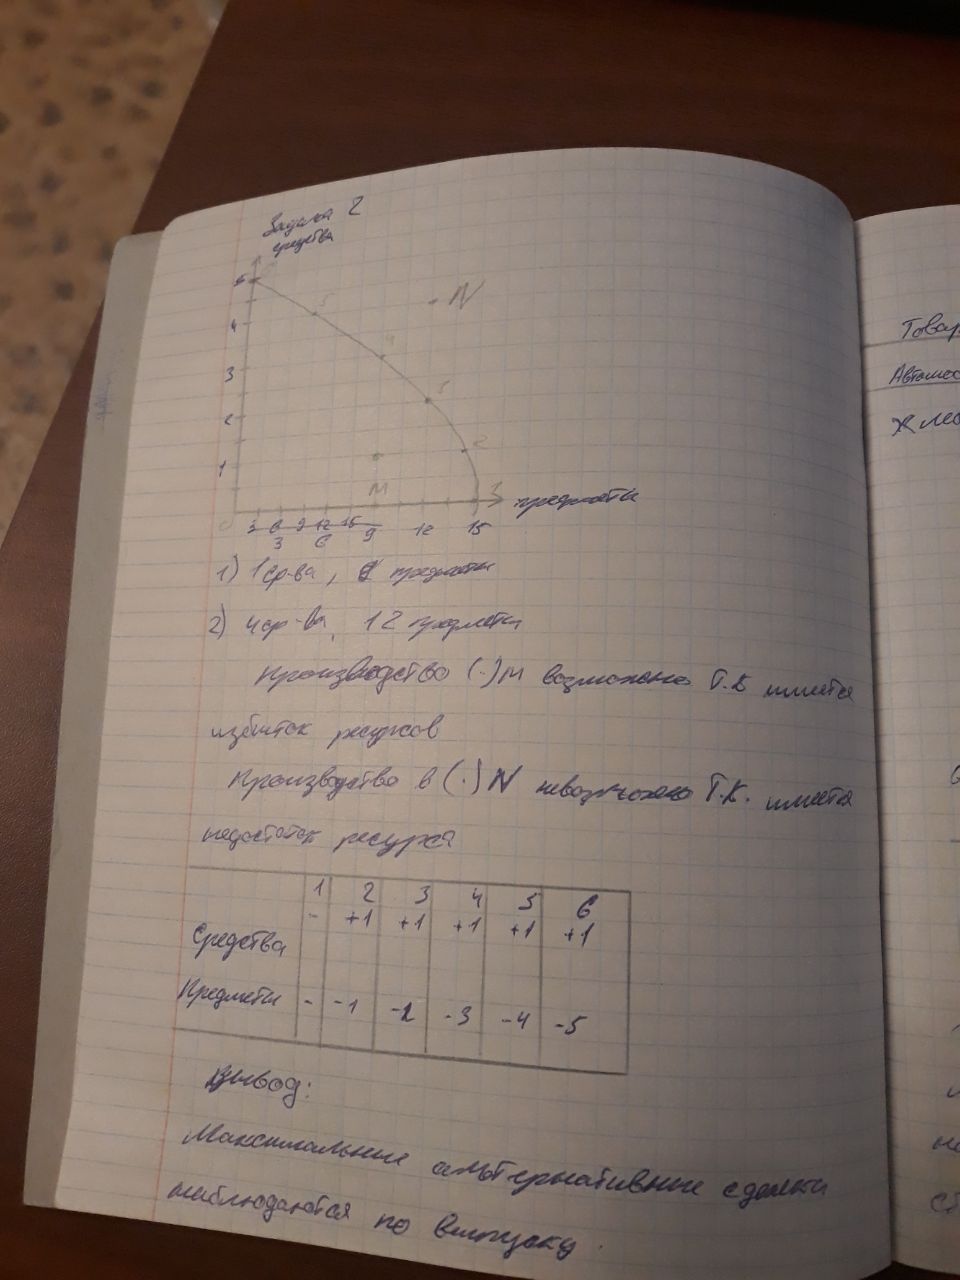 Задача 2
средства
5
N
5
4
4
3
3
2
2
1
M
1
предметы
0 3 6 9 12 15
3 6 9 12 15
1) 1 ср-ва, 6 предметы
2) 4 ср-ва, 12 предметы
Производство (·) M возможно т.к имеется
избыток ресурсов
Производство в (·) N невозможно т.к. имеется
недостаток ресурса
1 2 3 4 5 6
Средства - +1 +1 +1 +1 +1
Предметы - -1 -2 -3 -4 -5
Вывод:
Максимальные альтернативные
наблюдаются по выпуску.
Товар
Автомоб